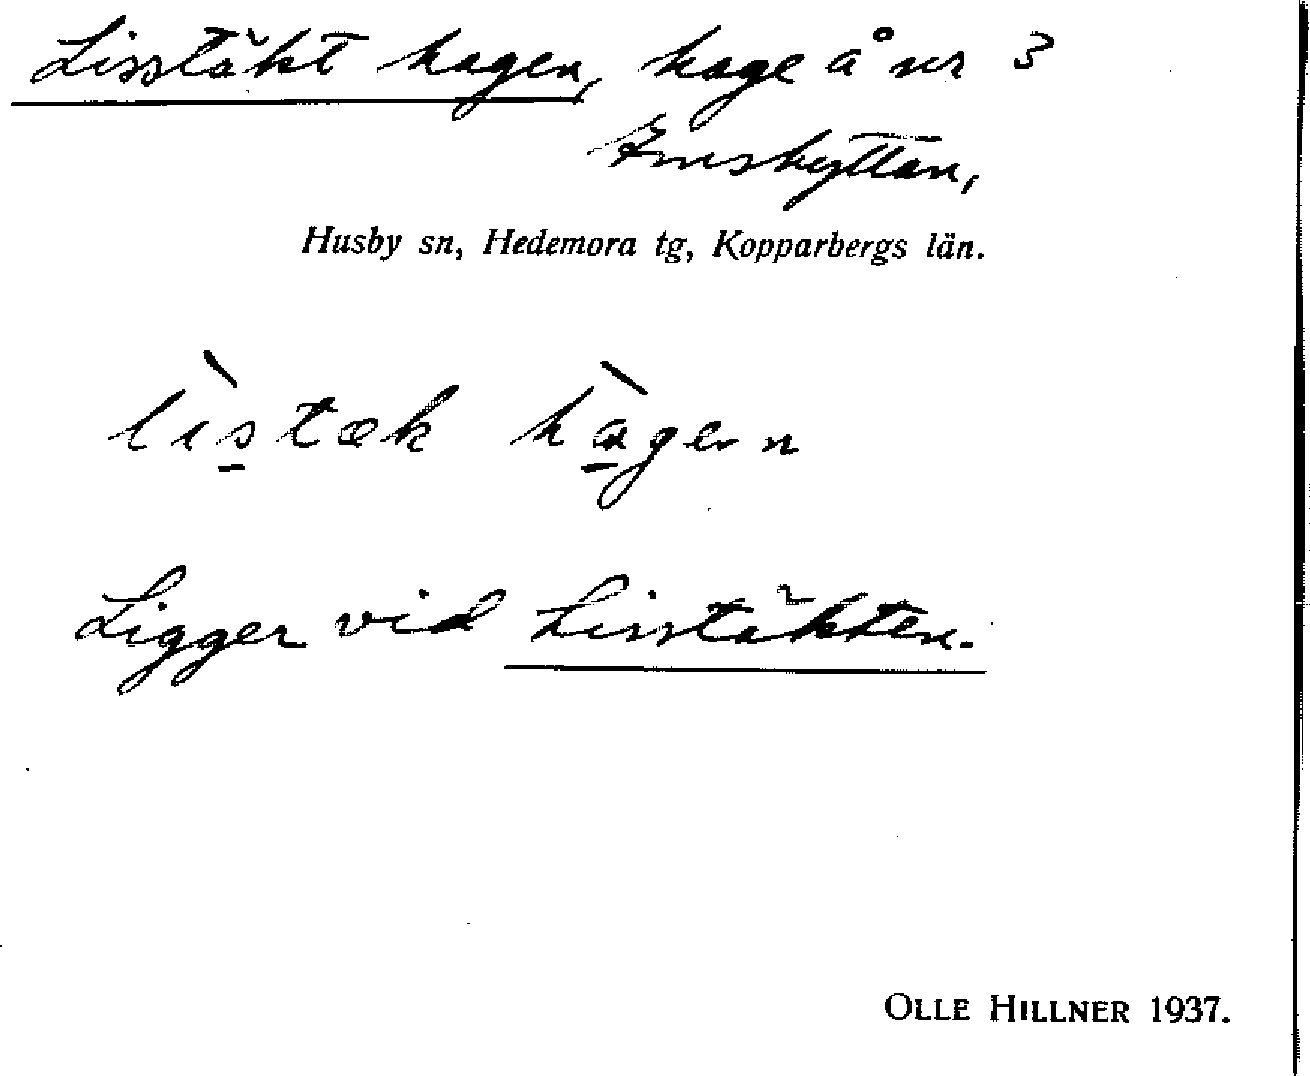 Lisstäkt hagen, hage å nr 3
Smeshyttan,
Husby sn, Hedemora tg, Kopparbergs län.
listæk hagen
Ligger vid Lisstäkten.
OLLE HILLNER 1937.